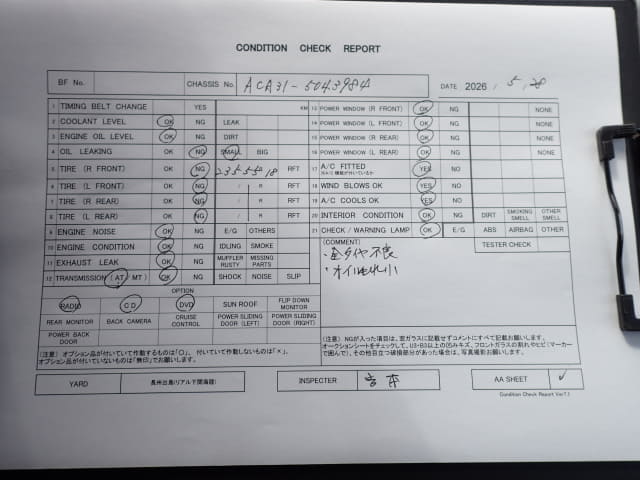 CONDITION CHECK REPORT
BF No. CHASSIS No. ACA31-5043984 DATE 2026 . 5 . 28
1 TIMING BELT CHANGE YES KM
2 COOLANT LEVEL OK NG LEAK
3 ENGINE OIL LEVEL OK NG DIRT
4 OIL LEAKING OK NG SMALL BIG
5 TIRE (R FRONT) OK NG 235-55-18 RFT
6 TIRE (L FRONT) OK NG / R RFT
7 TIRE (R REAR) OK NG / R RFT
8 TIRE (L REAR) OK NG / R RFT
9 ENGINE NOISE OK NG E/G OTHERS
10 ENGINE CONDITION OK NG IDLING SMOKE
11 EXHAUST LEAK OK NG MUFFLER RUSTY MISSING PARTS
12 TRANSMISSION (AT / MT) OK NG SHOCK NOISE SLIP
OPTION
RADIO CD DVD SUN ROOF FLIP DOWN MONITOR
REAR MONITOR BACK CAMERA CRUISE CONTROL POWER SLIDING DOOR (LEFT) POWER SLIDING DOOR (RIGHT)
POWER BACK DOOR
(注意) オプション品が付いていて作動するものは「○」、付いていて作動しないものは「×」、
オプション品が付いていないものは「無印」でお願いします。
13 POWER WINDOW (R FRONT) OK NG NONE
14 POWER WINDOW (L FRONT) OK NG NONE
15 POWER WINDOW (R REAR) OK NG NONE
16 POWER WINDOW (L REAR) OK NG NONE
17 A/C FITTED YES NO
18 WIND BLOWS OK YES NO
19 A/C COOLS OK YES NO
20 INTERIOR CONDITION OK NG DIRT SMOKING SMELL OTHER SMELL
21 CHECK / WARNING LAMP OK E/G ABS AIRBAG OTHER
(COMMENT) TESTER CHECK
・全タイヤ不良
・オイルもれ小
(注意) NGが入った項目は、窓ガラスに記載せずコメントにすべて記載お願いします。
オークションシートをチェックして、U3・B3以上の凹みキズ、フロントガラスの割れやヒビ(マーカー
で囲んで)、その他目立つ破損部分があった場合は、写真撮影お願いします。
YARD 長州出島(リアル下関海陸) INSPECTER 吉本 AA SHEET ✓
Condition Check Report Ver7.1